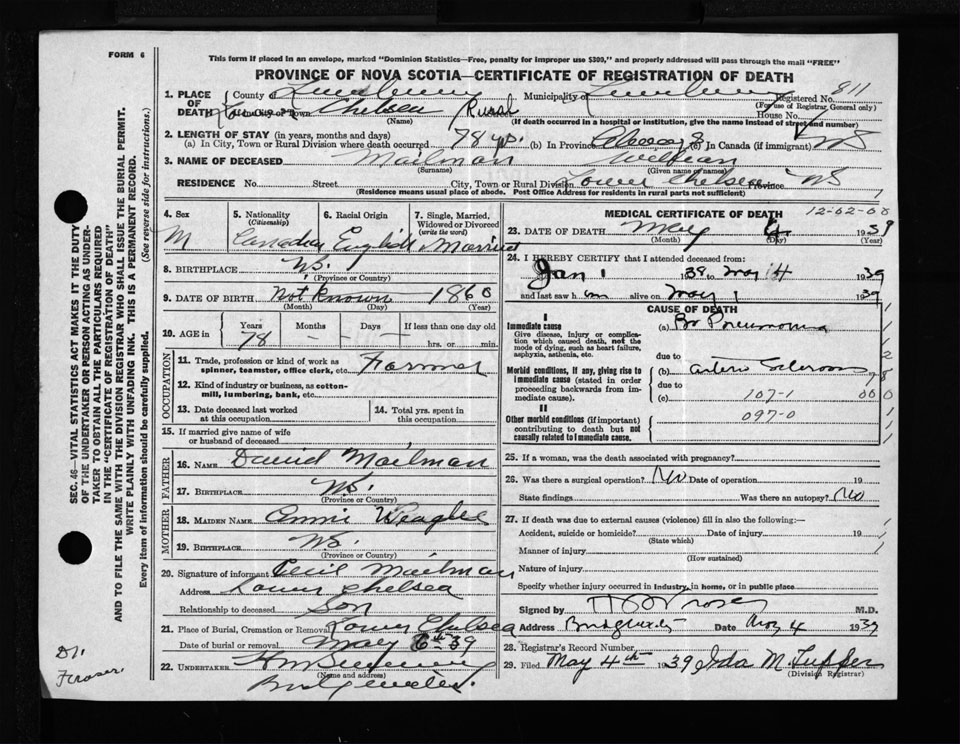 FORM 6
This form if placed in an envelope, marked "Dominion Statistics—Free, penalty for improper use $300," and properly addressed will pass through the mail "FREE"
PROVINCE OF NOVA SCOTIA—CERTIFICATE OF REGISTRATION OF DEATH
811
1. PLACE OF DEATH County of Lunenburg Municipality of Lunenburg Registered No.
(For use of Registrar General only)
Lower Chelsea Rural House No.
(Name) (If death occurred in a hospital or institution, give the name instead of street and number)
2. LENGTH OF STAY (in years, months and days)
(a) In City, Town or Rural Division where death occurred 78 yrs. (b) In Province Always (c) In Canada (if immigrant) NS
3. NAME OF DECEASED Mailman William
(Surname) (Given name or names)
RESIDENCE No. Street City, Town or Rural Division Lower Chelsea Province NS
(Residence means usual place of abode. Post Office Address for residents in rural parts not sufficient)
4. Sex M
5. Nationality (Citizenship) Canadian
6. Racial Origin English
7. Single, Married, Widowed or Divorced (write the word) Married
8. BIRTHPLACE N.S.
(Province or Country)
9. DATE OF BIRTH Not Known 1860
(Month) (Day) (Year)
10. AGE in Years 78 Months - Days - If less than one day old hrs. or min.
OCCUPATION
11. Trade, profession or kind of work as spinner, teamster, office clerk, etc. Farmer
12. Kind of industry or business, as cotton-mill, lumbering, bank, etc.
13. Date deceased last worked at this occupation
14. Total yrs. spent in this occupation
15. If married give name of wife or husband of deceased
FATHER
16. NAME David Mailman
17. BIRTHPLACE N.S.
(Province or Country)
MOTHER
18. MAIDEN NAME Annie Weagle
19. BIRTHPLACE N.S.
(Province or Country)
20. Signature of informant Cecil Mailman
Address Lower Chelsea
Relationship to deceased Son
21. Place of Burial, Cremation or Removal Lower Chelsea
Date of burial or removal May 6th 39
22. UNDERTAKER
(Name and address)
Bridgewater.
MEDICAL CERTIFICATE OF DEATH 12-02-08
23. DATE OF DEATH May 4 1939
(Month) (Day) (Year)
24. I HEREBY CERTIFY that I attended deceased from:
Jan 1 1939 to May 4 1939
and last saw him alive on May 1 1939
CAUSE OF DEATH
I
Immediate cause
Give disease, injury or complication which caused death, not the mode of dying, such as heart failure, asphyxia, asthenia, etc.
(a) Br Pneumonia
due to
Morbid conditions, if any, giving rise to immediate cause (stated in order proceeding backwards from immediate cause).
(b) Arterio Sclerosis
due to
(c) 107-1
097-0
II
Other morbid conditions (if important) contributing to death but not causally related to immediate cause.
25. If a woman, was the death associated with pregnancy?
26. Was there a surgical operation? No Date of operation 19
State findings Was there an autopsy? No
27. If death was due to external causes (violence) fill in also the following:—
Accident, suicide or homicide? Date of injury 19
(State which)
Manner of injury
(How sustained)
Nature of injury
Specify whether injury occurred in industry, in home, or in public place
Signed by M.D.
Address Bridgewater Date May 4 1939
28. Registrar's Record Number
29. Filed May 4th 1939 Ida M. Tupper
(Division Registrar)
SEC. 46—VITAL STATISTICS ACT MAKES IT THE DUTY
OF THE UNDERTAKER OR PERSON ACTING AS UNDER-
TAKER TO OBTAIN ALL THE PARTICULARS REQUIRED
IN THE "CERTIFICATE OF REGISTRATION OF DEATH"
AND TO FILE THE SAME WITH THE DIVISION REGISTRAR WHO SHALL ISSUE THE BURIAL PERMIT.
WRITE PLAINLY WITH UNFADING INK. THIS IS A PERMANENT RECORD.
Every item of information should be carefully supplied. (See reverse side for instructions.)
Dr.
Fraser.